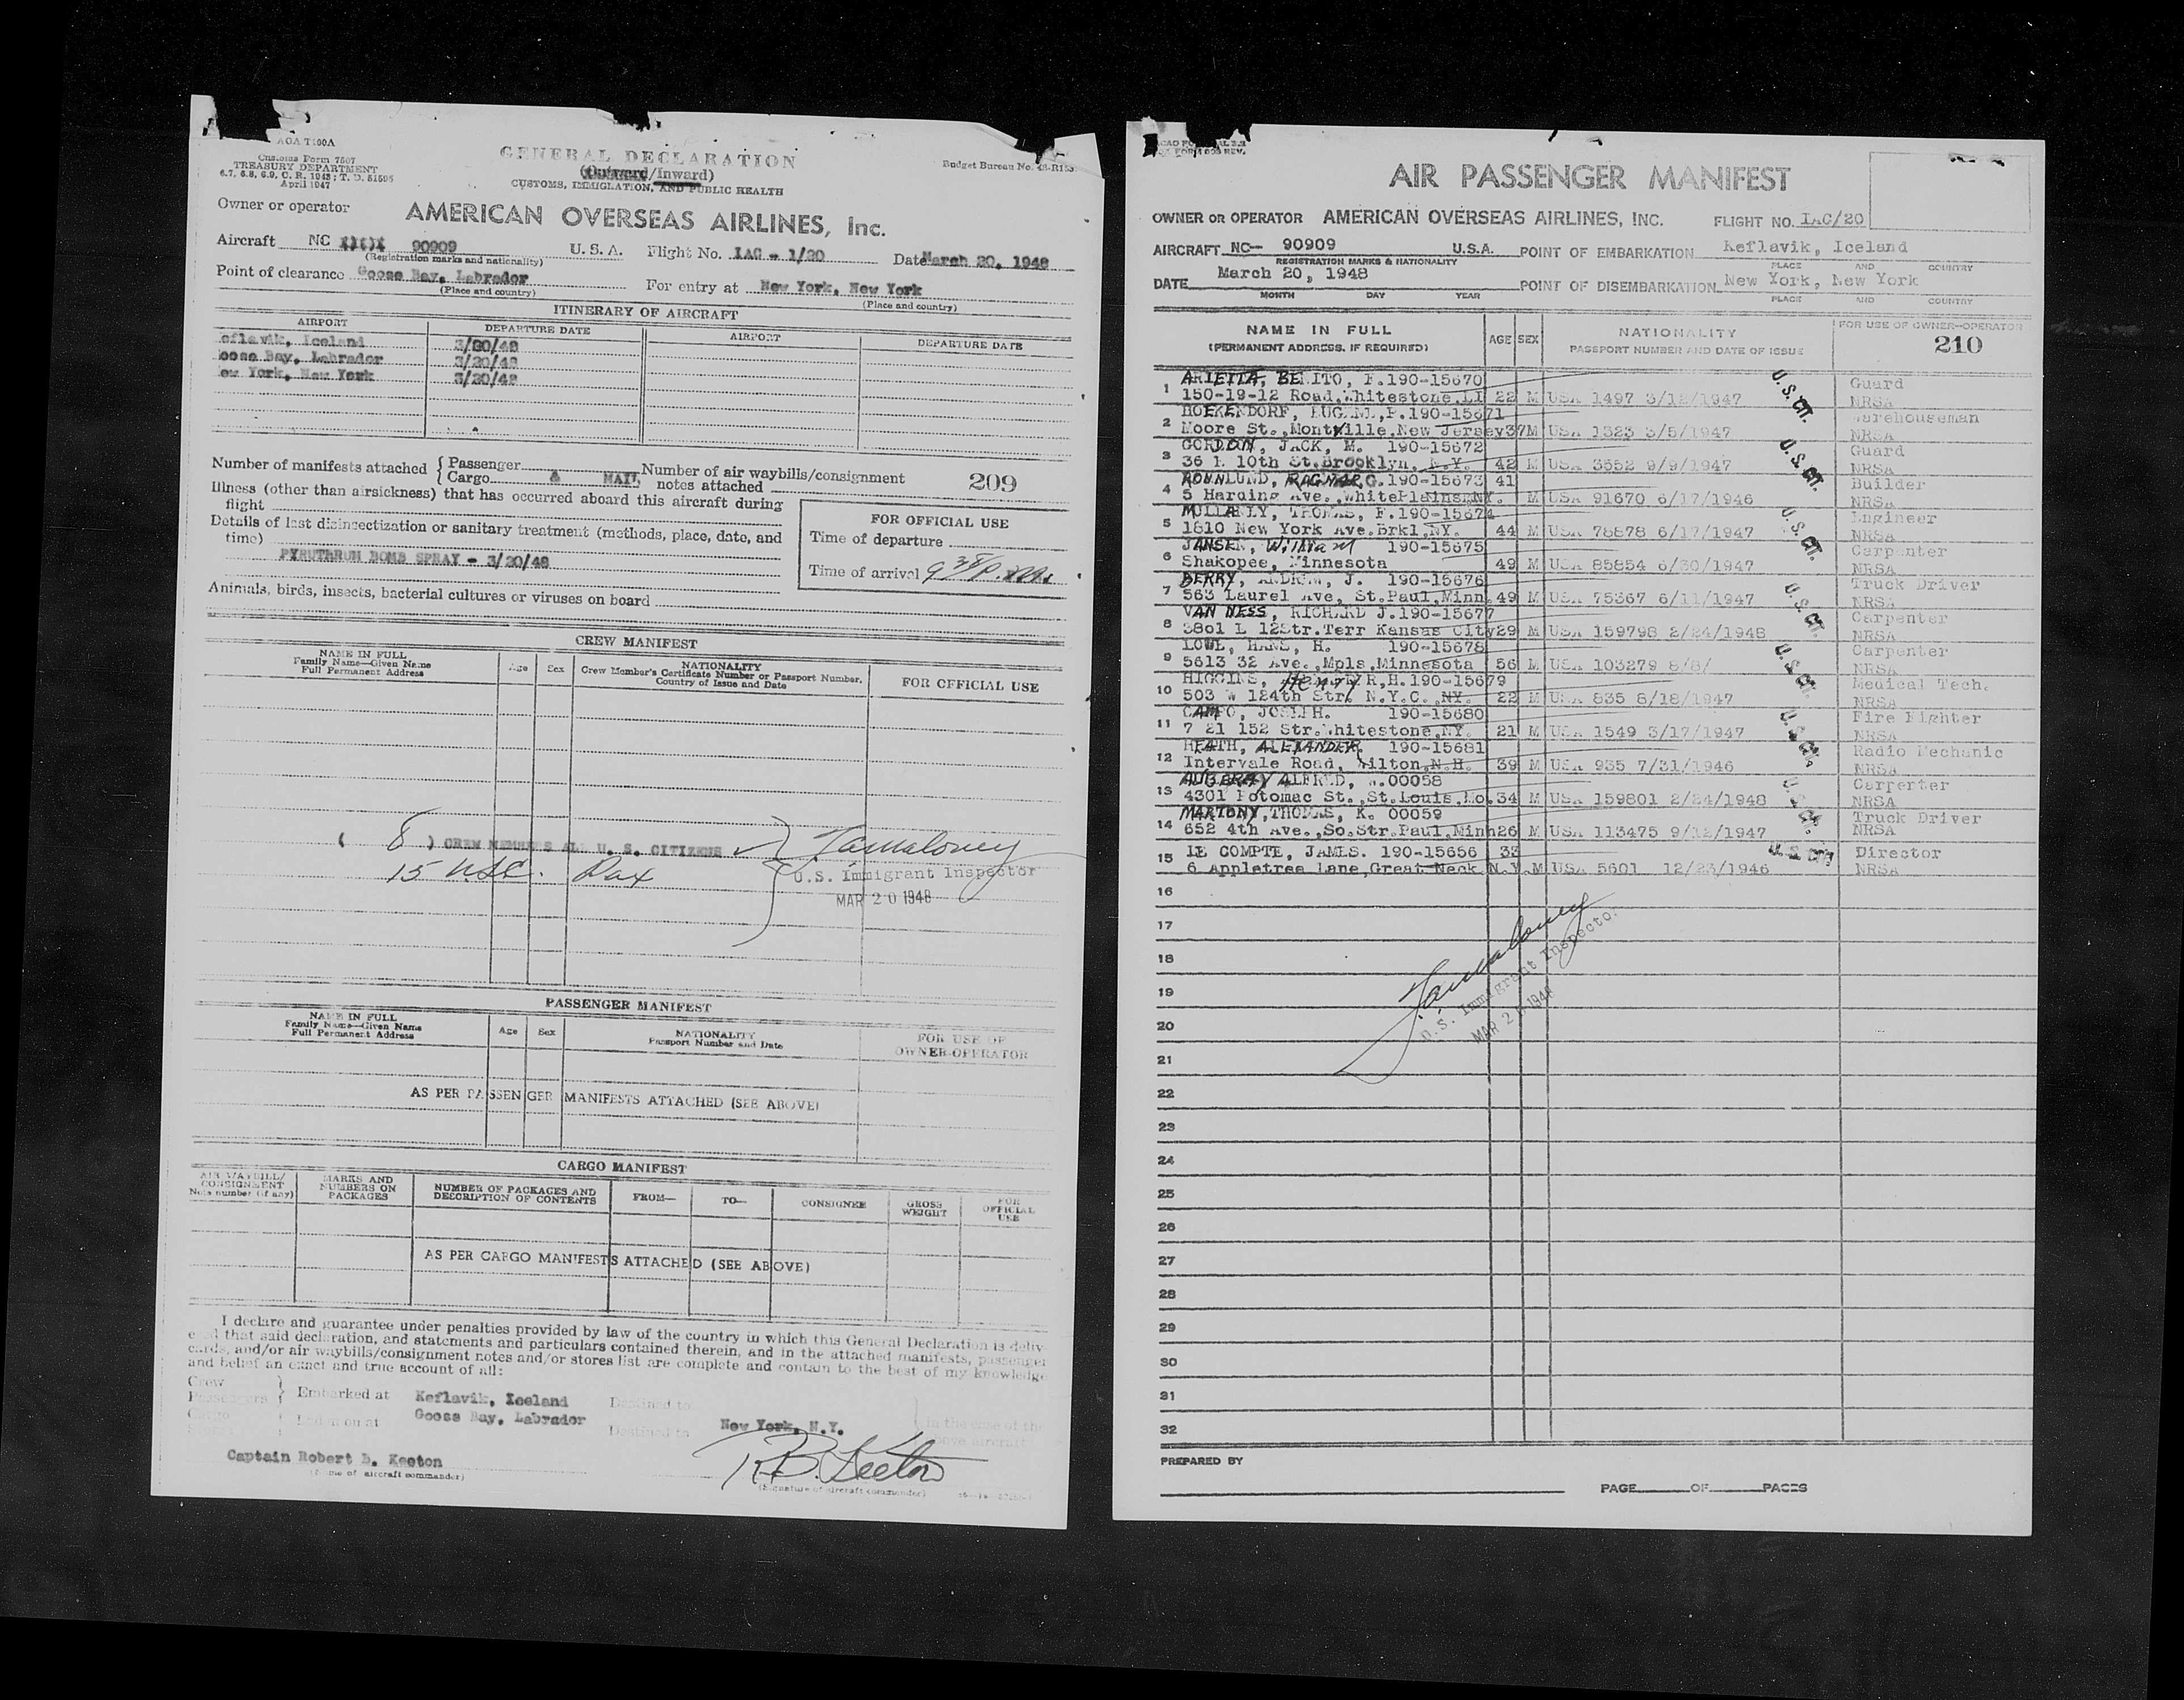 AOA T100A
Customs Form 7507
TREASURY DEPARTMENT
6.7, 6.8, 6.9, C. R. 1943; T. D. 51595
April 1947
GENERAL DECLARATION
(Outward/Inward)
CUSTOMS, IMMIGRATION, AND PUBLIC HEALTH
Budget Bureau No. 48-R153
Owner or operator AMERICAN OVERSEAS AIRLINES, Inc.
Aircraft NC 90909 U. S. A. Flight No. IAC - 1/20 Date March 20, 1948
(Registration marks and nationality)
Point of clearance Goose Bay, Labrador For entry at New York, New York
(Place and country) (Place and country)
ITINERARY OF AIRCRAFT
AIRPORT DEPARTURE DATE AIRPORT DEPARTURE DATE
eflavik, Iceland 3/20/48
oose Bay, Labrador 3/20/48
ew York, New York 3/20/48
Number of manifests attached { Passenger
Cargo & MAIL Number of air waybills/consignment notes attached 209
Illness (other than airsickness) that has occurred aboard this aircraft during
flight
Details of last disinsectization or sanitary treatment (methods, place, date, and
time)
PYRUTHRUM BOMB SPRAY - 3/20/48
FOR OFFICIAL USE
Time of departure
Time of arrival 9 38 P.
Animals, birds, insects, bacterial cultures or viruses on board
CREW MANIFEST
NAME IN FULL
Family Name—Given Name
Full Permanent Address
Age Sex
NATIONALITY
Crew Member's Certificate Number or Passport Number,
Country of Issue and Date
FOR OFFICIAL USE
( 8 ) CREW MEMBERS ALL U. S. CITIZENS
15 USC. Pax
U.S. Immigrant Inspector
MAR 20 1948
PASSENGER MANIFEST
NAME IN FULL
Family Name—Given Name
Full Permanent Address
Age Sex
NATIONALITY
Passport Number and Date
FOR USE OF
OWNER-OPERATOR
AS PER PASSENGER MANIFESTS ATTACHED (SEE ABOVE)
CARGO MANIFEST
AIR WAYBILL/
CONSIGNMENT
Note number (if any)
MARKS AND
NUMBERS ON
PACKAGES
NUMBER OF PACKAGES AND
DESCRIPTION OF CONTENTS
FROM— TO— CONSIGNEE
GROSS
WEIGHT
FOR
OFFICIAL
USE
AS PER CARGO MANIFESTS ATTACHED (SEE ABOVE)
I declare and guarantee under penalties provided by law of the country in which this General Declaration is deliv-
that said declaration, and statements and particulars contained therein, and in the attached manifests, passenger
cards, and/or air waybills/consignment notes and/or stores list are complete and contain to the best of my knowledge
and belief an exact and true account of all:
Crew
Passengers } Embarked at Keflavik, Iceland Destined to
Cargo Laden on at Goose Bay, Labrador Destined to New York, N.Y. in the case of the
above aircraft
Captain Robert B. Keeton R.B. Keeton
(Name of aircraft commander) (Signature of aircraft commander)
AIR PASSENGER MANIFEST
OWNER OR OPERATOR AMERICAN OVERSEAS AIRLINES, INC. FLIGHT NO. IAC/20
AIRCRAFT NC— 90909 U.S.A. POINT OF EMBARKATION Keflavik, Iceland
REGISTRATION MARKS & NATIONALITY PLACE AND COUNTRY
DATE March 20, 1948 POINT OF DISEMBARKATION New York, New York
MONTH DAY YEAR PLACE AND COUNTRY
NAME IN FULL
(PERMANENT ADDRESS, IF REQUIRED)
AGE SEX
NATIONALITY
PASSPORT NUMBER AND DATE OF ISSUE
FOR USE OF OWNER-OPERATOR
210
ARIETTA, BENITO, F.190-15670 Guard
1 150-19-12 Road,Whitestone,LI 22 M USA 1497 3/12/1947 U.S. CIT. NRSA
HOEKENDORF, EUGENE,P.190-15671 Warehouseman
2 Moore St.,Montville,New Jersey 37 M USA 1323 3/5/1947 NRSA
GORDON, JACK, M. 190-15672 Guard
3 36 E 10th St.Brooklyn, N.Y. 42 M USA 3552 9/9/1947 U.S. CIT. NRSA
RONNLUND, RAGNAR,G.190-15673 41 Builder
4 5 Harding Ave.,WhitePlains,NY. M USA 91670 6/17/1946 NRSA
MULLANLY, THOMAS, F.190-15674 Engineer
5 1810 New York Ave.Brkl,NY. 44 M USA 78878 6/17/1947 U.S. CIT. NRSA
JANSEN, William 190-15675 Carpenter
6 Shakopee, Minnesota 49 M USA 85854 6/30/1947 NRSA
BERRY, ANDREW, J. 190-15676 Truck Driver
7 563 Laurel Ave, St.Paul,Minn. 49 M USA 75367 6/11/1947 U.S. CIT. NRSA
VAN NESS, RICHARD J.190-15677 Carpenter
8 3801 E 12Str.Terr Kansas City 29 M USA 159798 2/24/1948 NRSA
LOWE, HANS, H. 190-15678 Carpenter
9 5613 32 Ave.,Mpls,Minnesota 56 M USA 103279 8/8/ U.S. CIT. NRSA
HIGGINS, Henry R,H.190-15679 Medical Tech.
10 503 W 124th Str. N.Y.C. NY. 22 M USA 835 8/18/1947 NRSA
CAMPO, JOSEPH. 190-15680 Fire Fighter
11 7 21 152 Str.Whitestone,NY. 21 M USA 1549 3/17/1947 U.S. CIT. NRSA
HEATH, ALEXANDER, 190-15681 Radio Mechanic
12 Intervale Road, Wilton,N.H. 39 M USA 935 7/31/1946 NRSA
AUBERRY ALFRED, W.00058 Carperter
13 4301 Potomac St.,St.Louis,Mo. 34 M USA 159801 2/24/1948 U.S. CIT. NRSA
MARTONY,THOMAS, K. 00059 Truck Driver
14 652 4th Ave.,So.Str.Paul,Minn 26 M USA 113475 9/12/1947 NRSA
LE COMPTE, JAMES. 190-15656 33 U.S. CIT. Director
15 6 Appletree Lane,Great Neck N.Y. M USA 5601 12/23/1946 NRSA
16
17
18
19
20
U.S. Immigrant Inspector
MAR 20 1948
21
22
23
24
25
26
27
28
29
30
31
32
PREPARED BY
PAGE OF PAGES